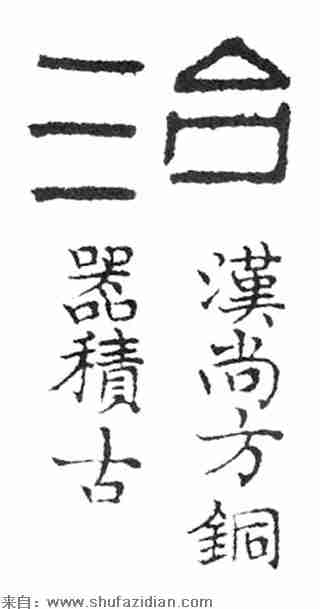 治
漢尚方銅
器積古
来自：www.shufazidian.com